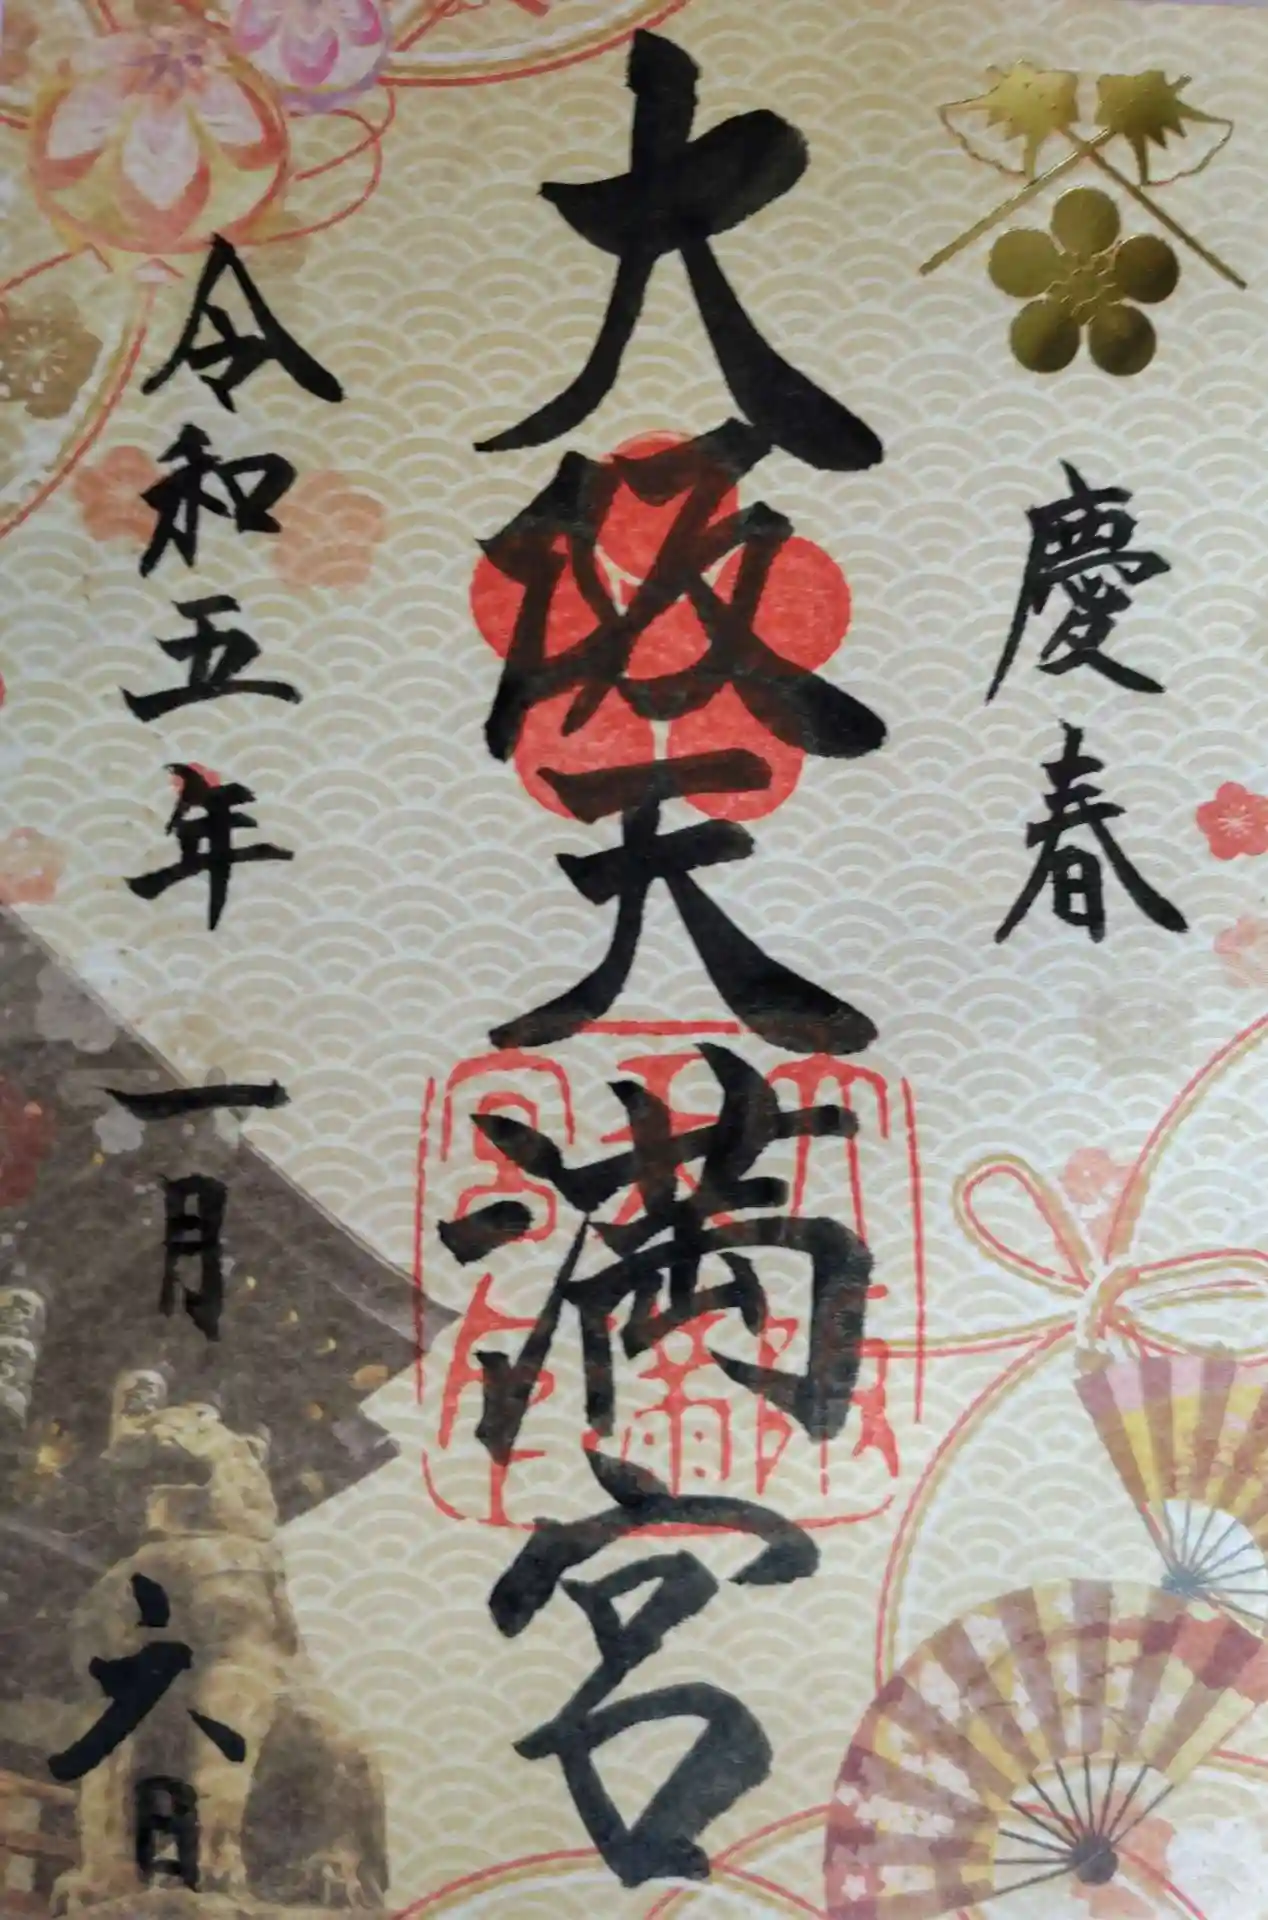 慶春
大阪天満宮
令和五年一月六日